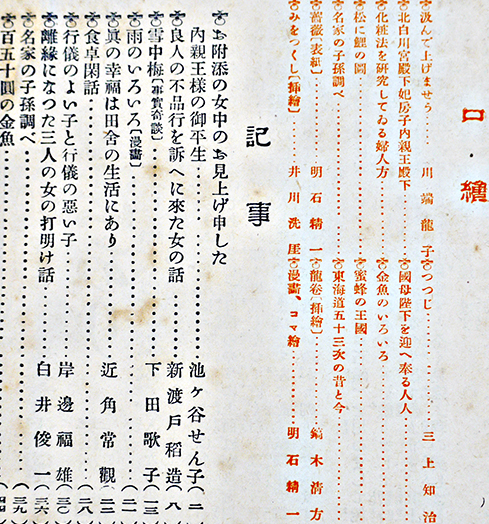 口繪
汲んで上げませう……川端龍子
北白川宮殿下妃房子内親王殿下
化粧法を研究してゐる婦人方
松に鯉の圖
名家の子孫調べ
薔薇〔表紙〕……明石精一
みをつくし〔挿繪〕……井川洗厓
つつじ……三上知治
國母陛下を迎へ奉る人人
金魚のいろいろ
蜜蜂の王國
東海道五十三次の昔と今
龍卷〔挿繪〕……鏑木清方
漫畫、コマ繪……明石精一
記事
お附添の女中のお見上げ申した
内親王樣の御平生……池ヶ谷せん子(二
良人の不品行を訴へに來た女の話……新渡戸稻造(八
雪中梅〔事實奇談〕……下田歌子(一三
雨のいろいろ〔漫畫〕……(二一
眞の幸福は田舍の生活にあり……近角常觀(二二
食卓閑話……(二八
行儀のよい子と行儀の惡い子……岸邊福雄(三〇
離緣になつた三人の女の打明け話……白井俊一(三六
名家の子孫調べ……(三九
百五十圓の金魚……(四四